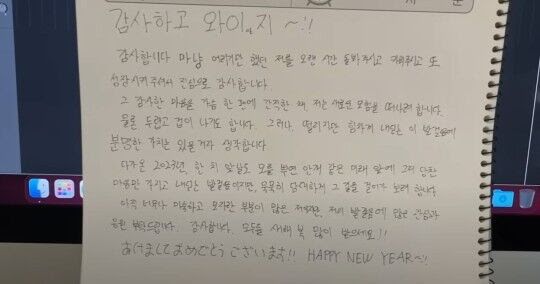 감사하고 와이지 ~!!
감사합니다 마냥 여리기만 했던 저를 오랜 시간 돌봐주시고 키워주시고 또
성장시켜주셔서 진심으로 감사합니다.
그 감사한 마음을 가슴 한 편에 간직한 채 저는 새로운 모험을 떠나려 합니다.
물론 두렵고 겁이 나기도 합니다. 그러나, 떨리지만 힘차게 내딛는 이 발걸음에
분명한 가치는 있을거라 생각합니다
다가온 2023년, 한 치 앞날도 모를 뿌연 안개 같은 미래 앞에 그저 당찬
마음만 가지고 내딛는 발걸음이지만, 묵묵히 담대하게 그 길을 걸어가 보려 합니다
아직 너무나 미숙하고 모자란 부분이 많은 저에지만, 저의 발걸음에 많은 관심과
응원 부탁드립니다. 감사합니다. 모두들 새해 복 많이 받으세요!!
あけましておめでとうございます!! HAPPY NEW YEAR~!!